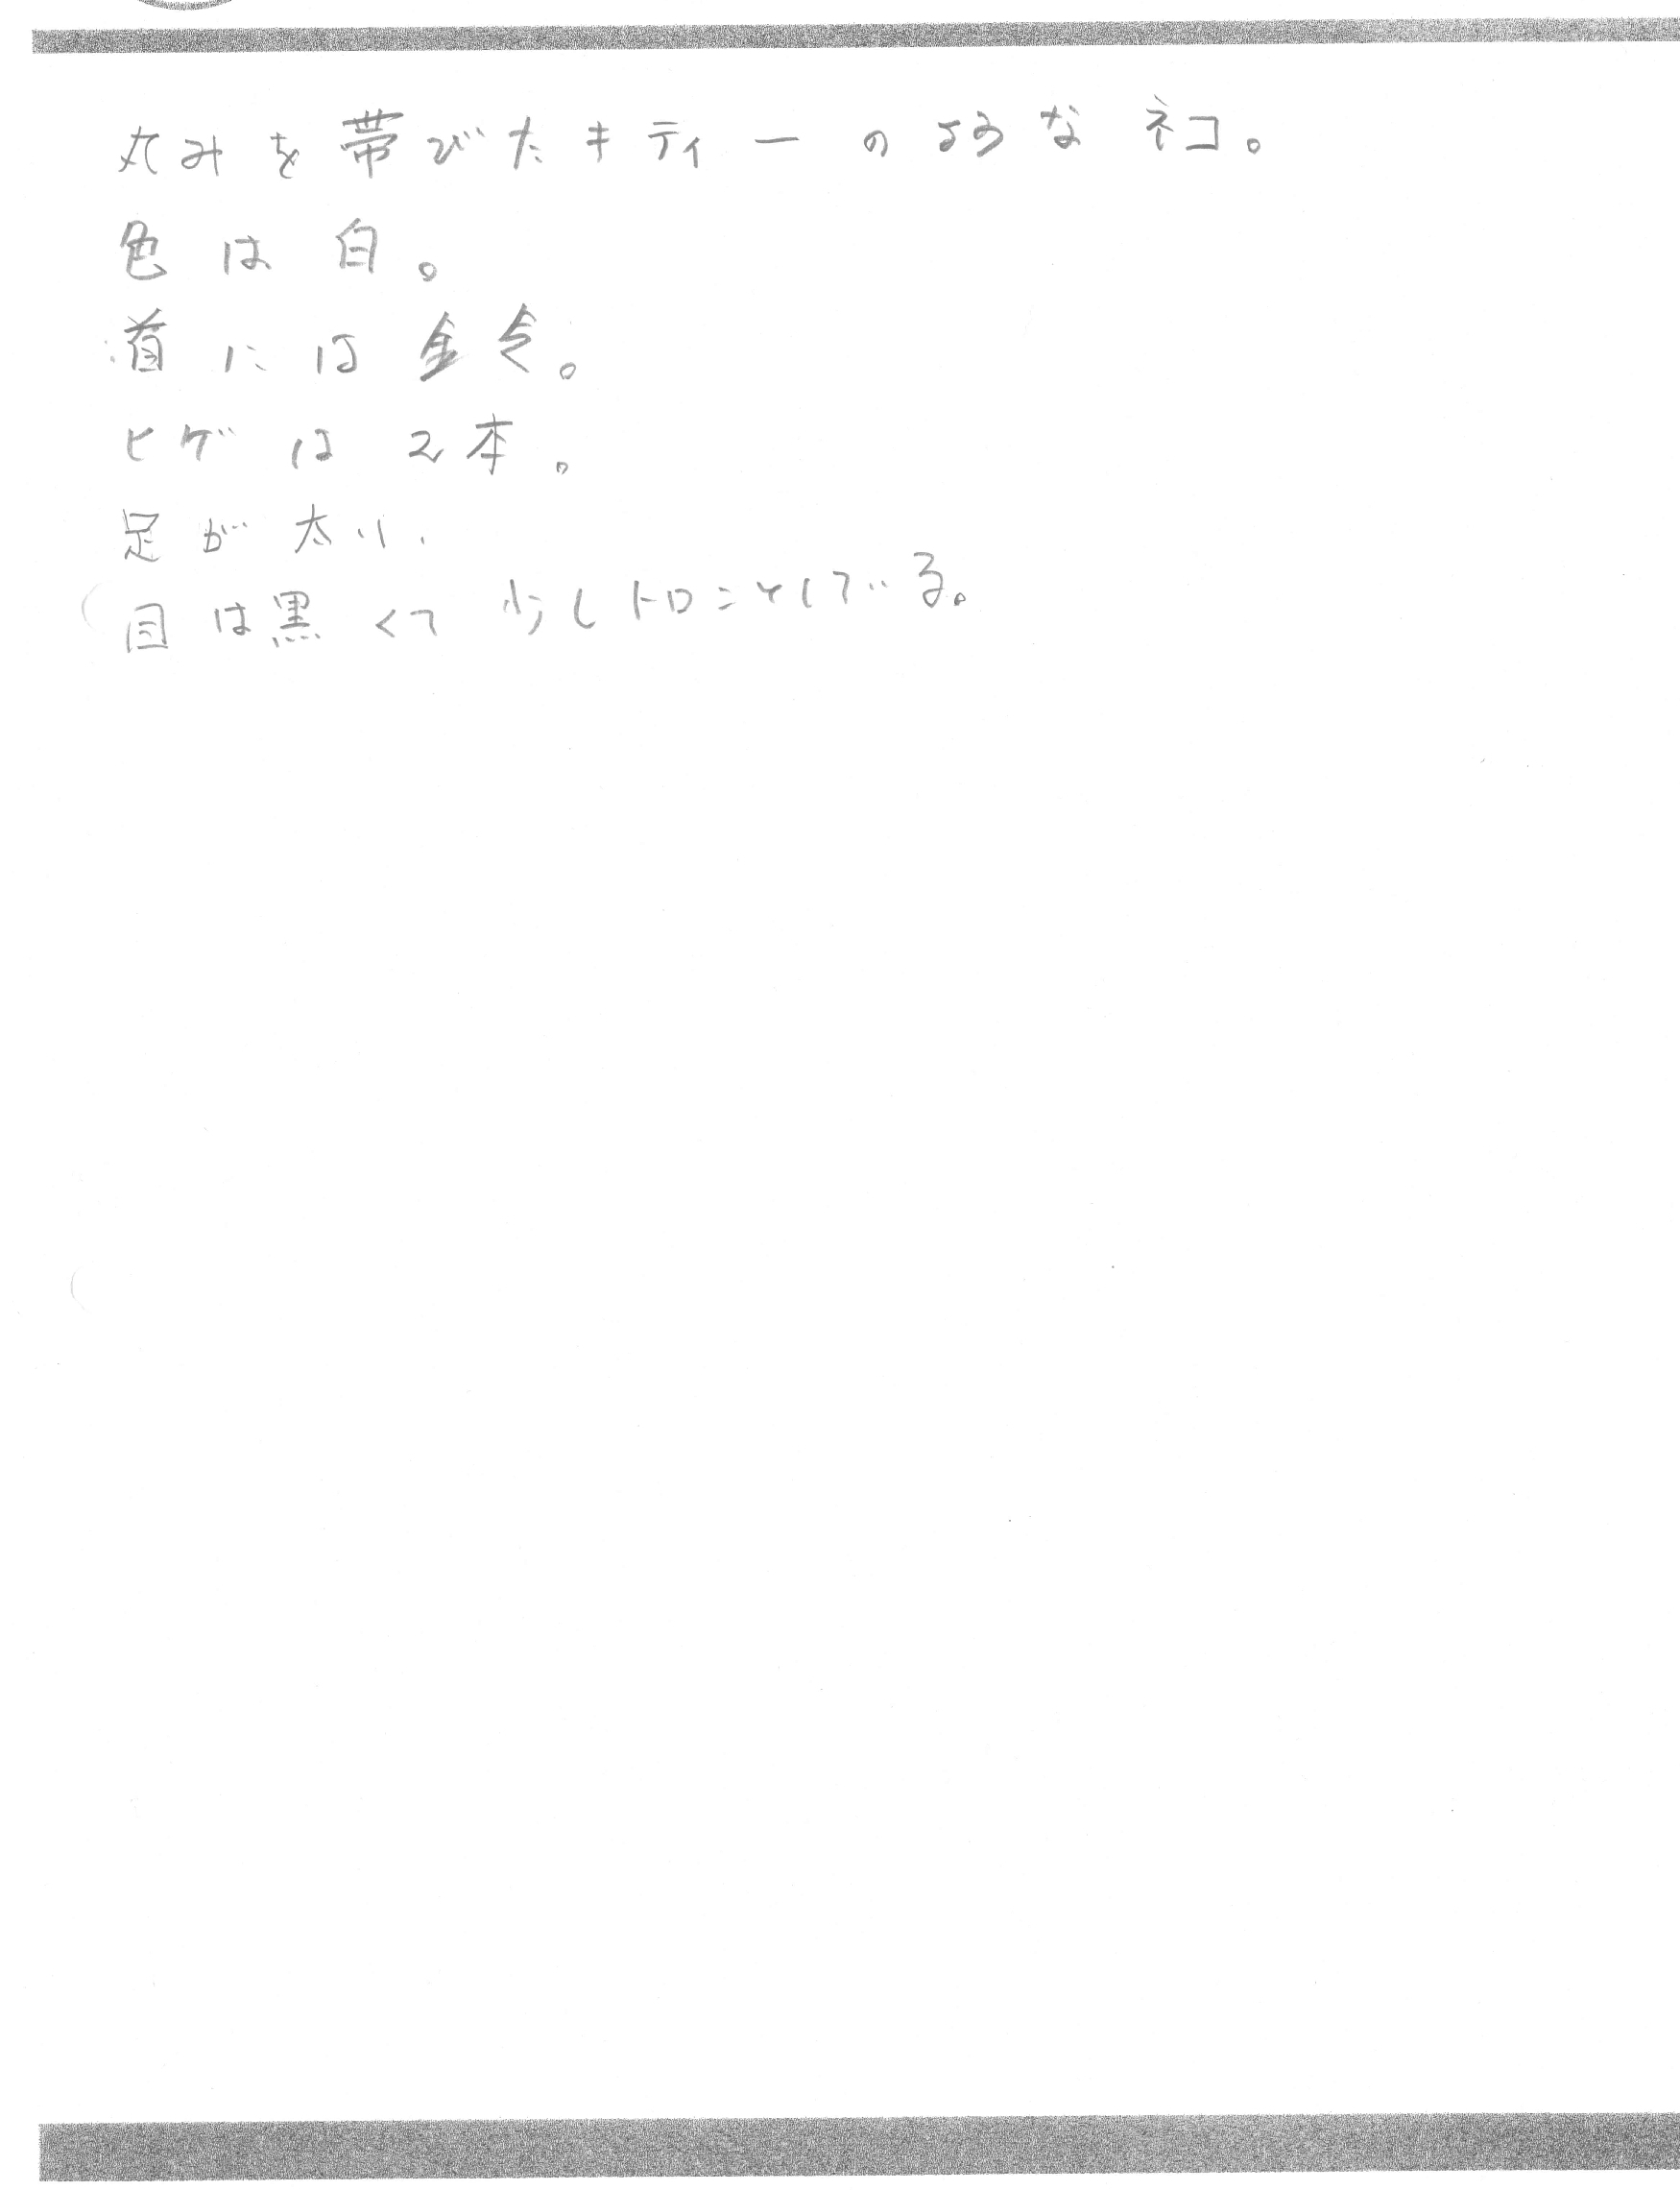 丸みを帯びたキティーのようなネコ。
色は白。
首には鈴。
ヒゲは2本。
足が太い、
目は黒くて少しトロンとしている。